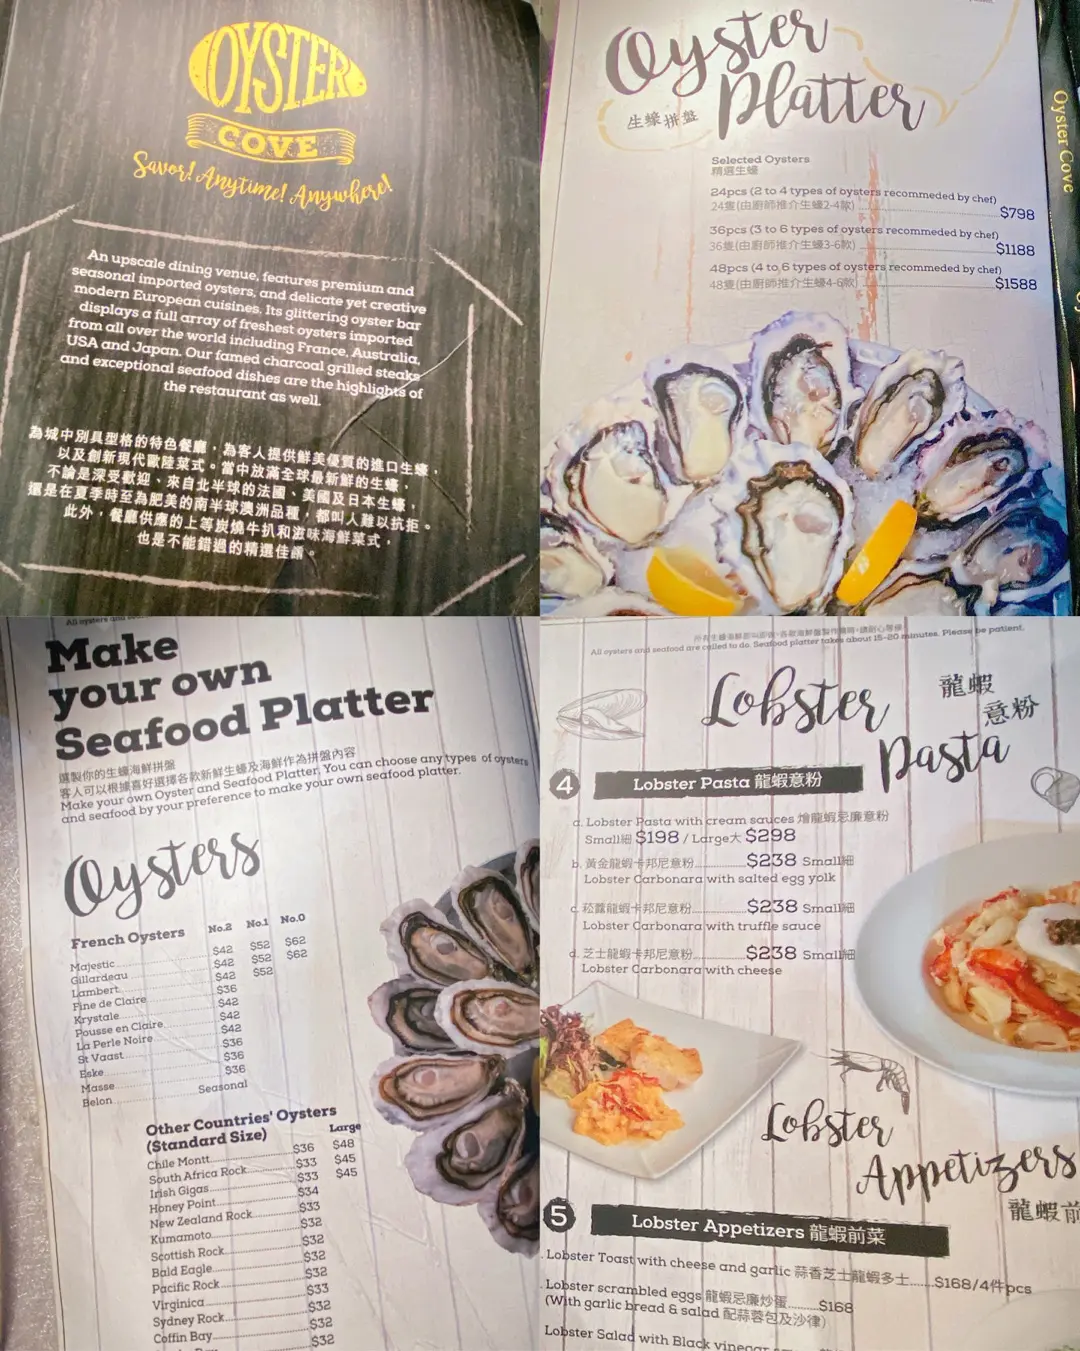 OYSTER
COVE
Savor! Anytime! Anywhere!
An upscale dining venue, features premium and
seasonal imported oysters, and delicate yet creative
modern European cuisines. Its glittering oyster bar
displays a full array of freshest oysters imported
from all over the world including France, Australia,
USA and Japan. Our famed charcoal grilled steaks
and exceptional seafood dishes are the highlights of
the restaurant as well.
為城中別具型格的特色餐廳，為客人提供鮮美優質的進口生蠔，
以及創新現代歐陸菜式。當中放滿全球最新鮮的生蠔，
不論是深受歡迎、來自北半球的法國、美國及日本生蠔，
還是在夏季時至為肥美的南半球澳洲品種，都叫人難以抗拒。
此外，餐廳供應的上等炭燒牛扒和滋味海鮮菜式，
也是不能錯過的精選佳餚。
Oyster
Platter
生蠔拼盤
Selected Oysters
精選生蠔
24pcs (2 to 4 types of oysters recommeded by chef)
24隻(由廚師推介生蠔2-4款) $798
36pcs (3 to 6 types of oysters recommeded by chef)
36隻(由廚師推介生蠔3-6款) $1188
48pcs (4 to 6 types of oysters recommeded by chef)
48隻(由廚師推介生蠔4-6款) $1588
Oyster Cove
All oysters and
Make
your own
Seafood Platter
選製你的生蠔海鮮拼盤
客人可以根據喜好選擇各款新鮮生蠔及海鮮作為拼盤內容
Make your own Oyster and Seafood Platter. You can choose any types of oysters
and seafood by your preference to make your own seafood platter.
Oysters
French Oysters No.2 No.1 No.0
Majestic $42 $52 $62
Gillardeau $42 $52 $62
Lambert $42 $52
Fine de Claire $36
Krystale $42
Pousse en Claire $42
La Perle Noire $42
St Vaast $36
Eske $36
Masse $36
Belon Seasonal
Other Countries' Oysters
(Standard Size) Large
Chile Montt $36 $48
South Africa Rock $33 $45
Irish Gigas $33 $45
Honey Point $34
New Zealand Rock $33
Kumamoto $32
Scottish Rock $32
Bald Eagle $32
Pacific Rock $32
Virginica $33
Sydney Rock $32
Coffin Bay $32
$32
所有生蠔海鮮即叫即做，各款海鮮盤製作需時，請耐心等候
All oysters and seafood are called to do. Seafood platter takes about 15-20 minutes. Please be patient.
Lobster
Pasta
龍蝦
意粉
4 Lobster Pasta 龍蝦意粉
a. Lobster Pasta with cream sauces 燴龍蝦忌廉意粉
Small細 $198 / Large大 $298
b. 黃金龍蝦卡邦尼意粉 $238 Small細
Lobster Carbonara with salted egg yolk
c. 菘露龍蝦卡邦尼意粉 $238 Small細
Lobster Carbonara with truffle sauce
d. 芝士龍蝦卡邦尼意粉 $238 Small細
Lobster Carbonara with cheese
Lobster
Appetizers
龍蝦前
5 Lobster Appetizers 龍蝦前菜
. Lobster Toast with cheese and garlic 蒜香芝士龍蝦多士 $168/4件pcs
. Lobster scrambled eggs 龍蝦忌廉炒蛋 $168
(With garlic bread & salad 配蒜蓉包及沙律)
Lobster Salad with Black vinegar